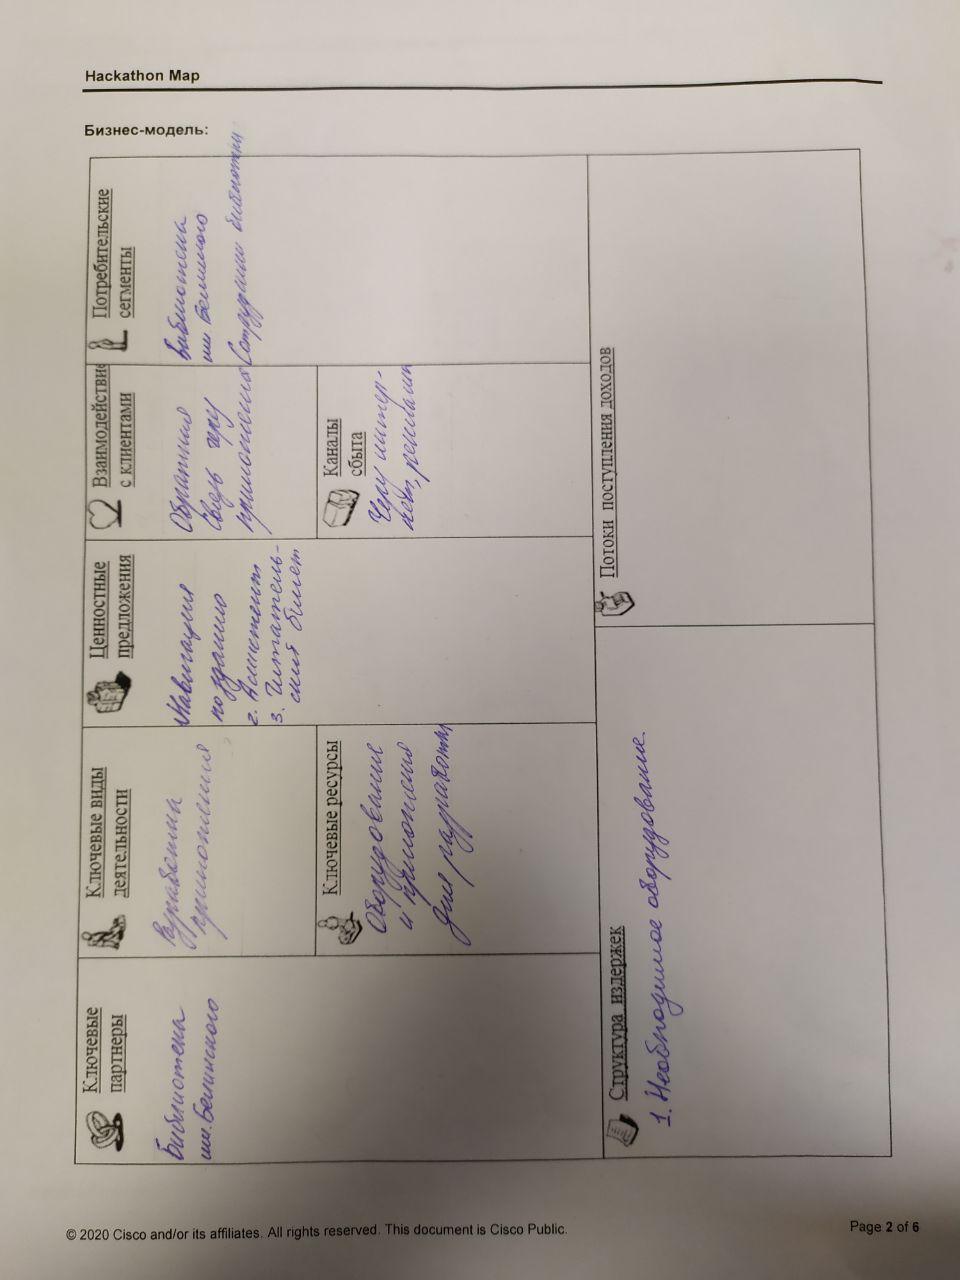 Hackathon Map
Бизнес-модель:
Ключевые
партнеры
Библиотека
им. Белинского
Ключевые виды
деятельности
Разработка
приложения
Ключевые ресурсы
Оборудование
и приложения
для разработки
Ценностные
предложения
Навигация
по зданию
2. Ассистент
3. Читатель-
ский билет
Взаимодействие
с клиентами
Обратная
связь через
приложение
Каналы
сбыта
Через интер-
нет,
Потребительские
сегменты
Библиотека
им. Белинского
Сотрудники библиотеки
Структура издержек
1. Необходимое оборудование
Потоки поступления доходов
© 2020 Cisco and/or its affiliates. All rights reserved. This document is Cisco Public.
Page 2 of 6